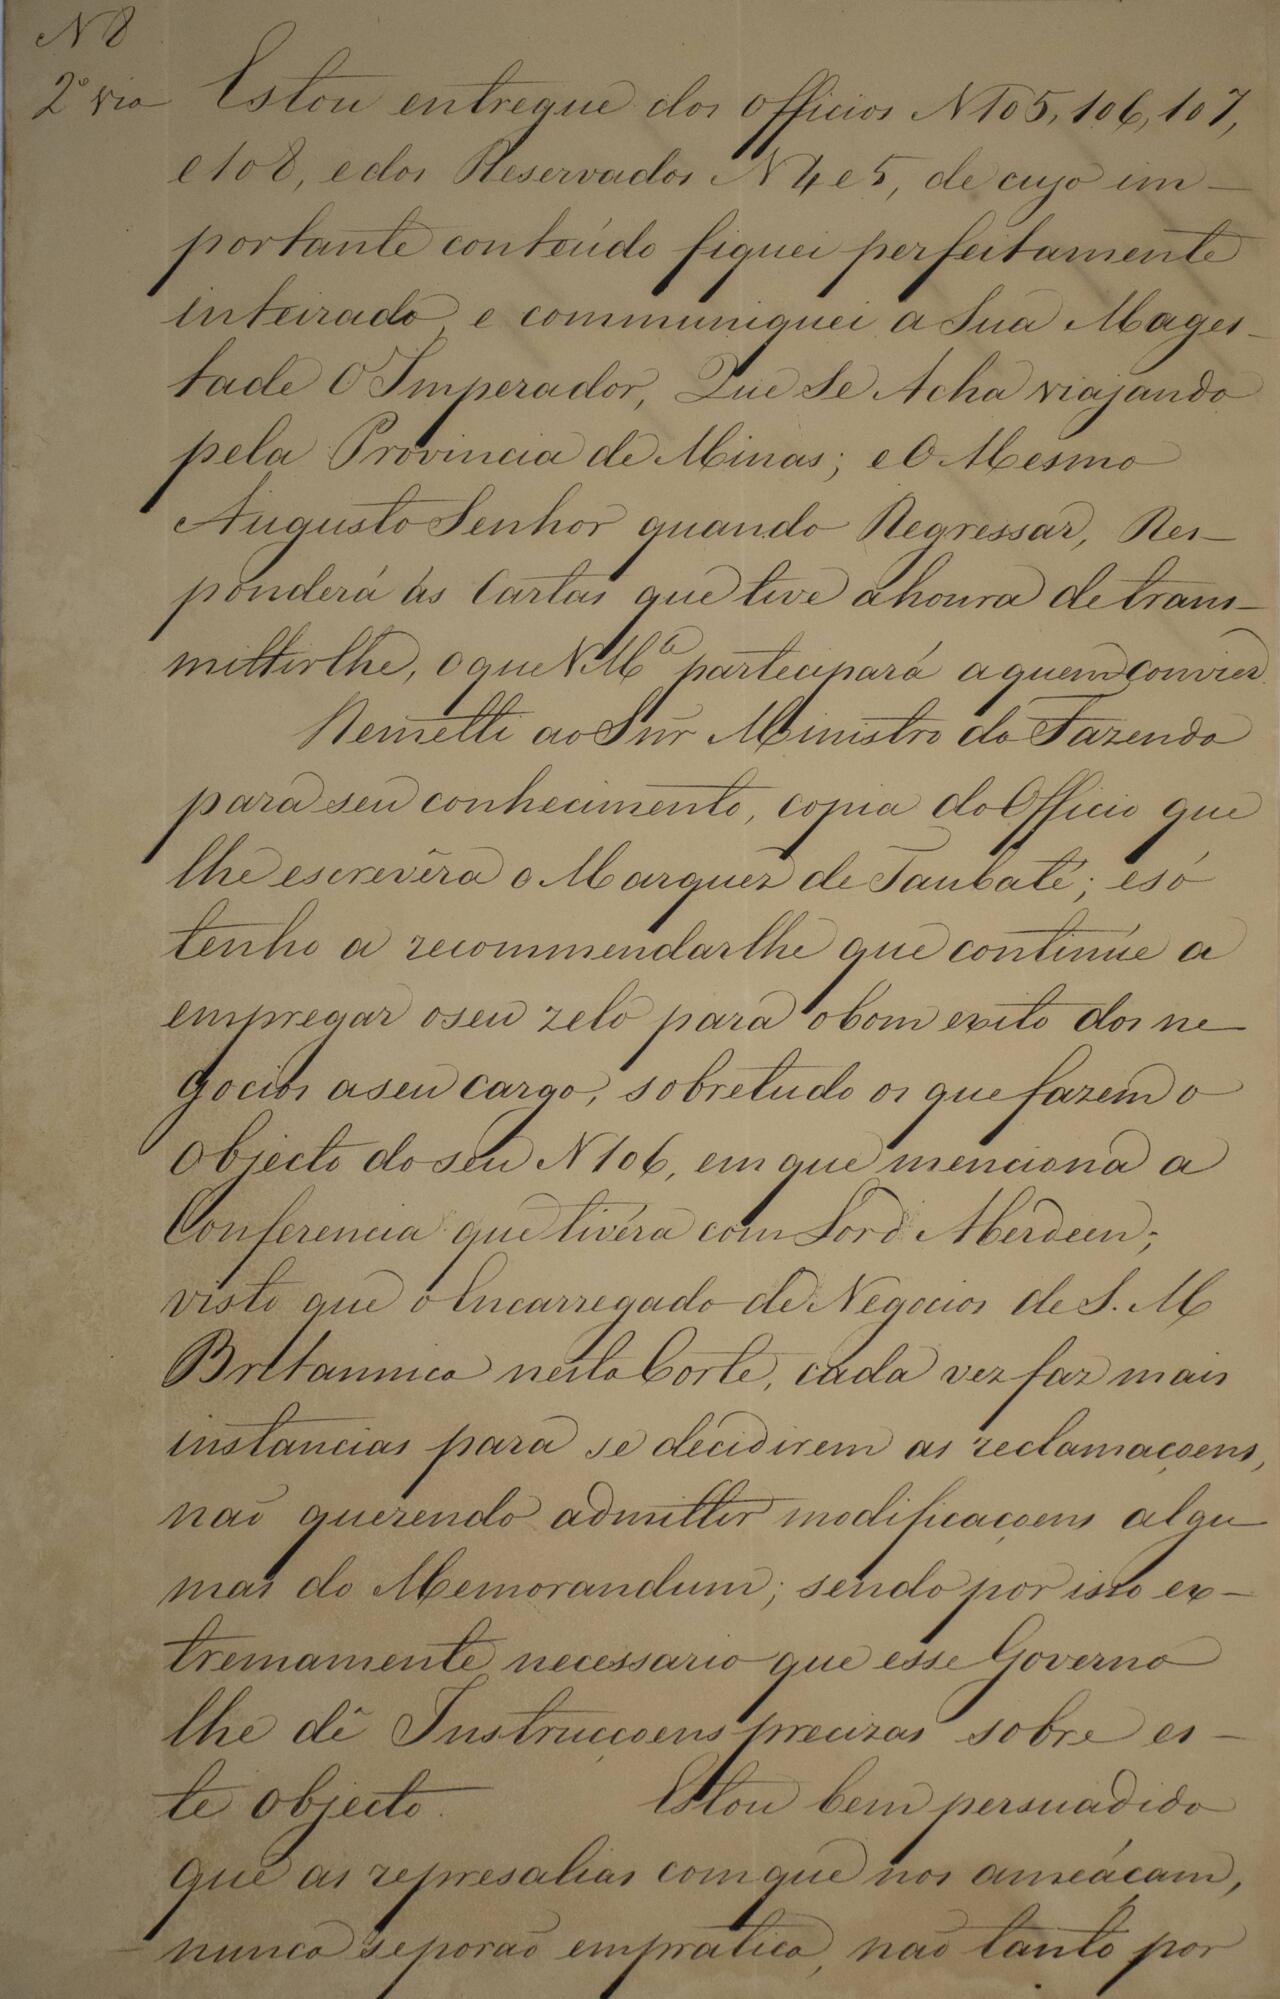 N 8
2ª via
Estou entregue dos officios N 105, 106, 107,
e 108, e dos Reservados N 4 e 5, de cujo im-
portante conteúdo fiquei perfeitamente
inteirado, e communiquei a Sua Mages-
tade O Imperador, Que Se Acha viajando
pela Provincia de Minas; e O Mesmo
Augusto Senhor quando Regressar, Res-
ponderá ás Cartas que tive a honra de trans-
mittirlhe, o que V Mª participará a quem convier.
Remetti ao Snr Ministro da Fazenda
para seu conhecimento, copia do Officio que
lhe escrevêra o Marquez de Taubaté; e só
tenho a recommendarlhe que continúe a
empregar o seu zelo para o bom exito dos ne-
gocios a seu cargo, sobretudo os que fazem o
objecto do seu N 106, em que menciona a
Conferencia que tivéra com Lord Aberdeen;
visto que o Encarregado de Negocios de S. M
Britannica nesta Corte, cada vez faz mais
instancias para se decidirem as reclamaçoens,
não querendo admittir modificaçoens algu-
mas do Memorandum; sendo por isso ex-
tremamente necessario que esse Governo
lhe dê Instrucçoens precizas sobre es-
te objecto. Estou bem persuadido
que as represalias com que nos ameáçam,
nunca se porão em pratica, não tanto por